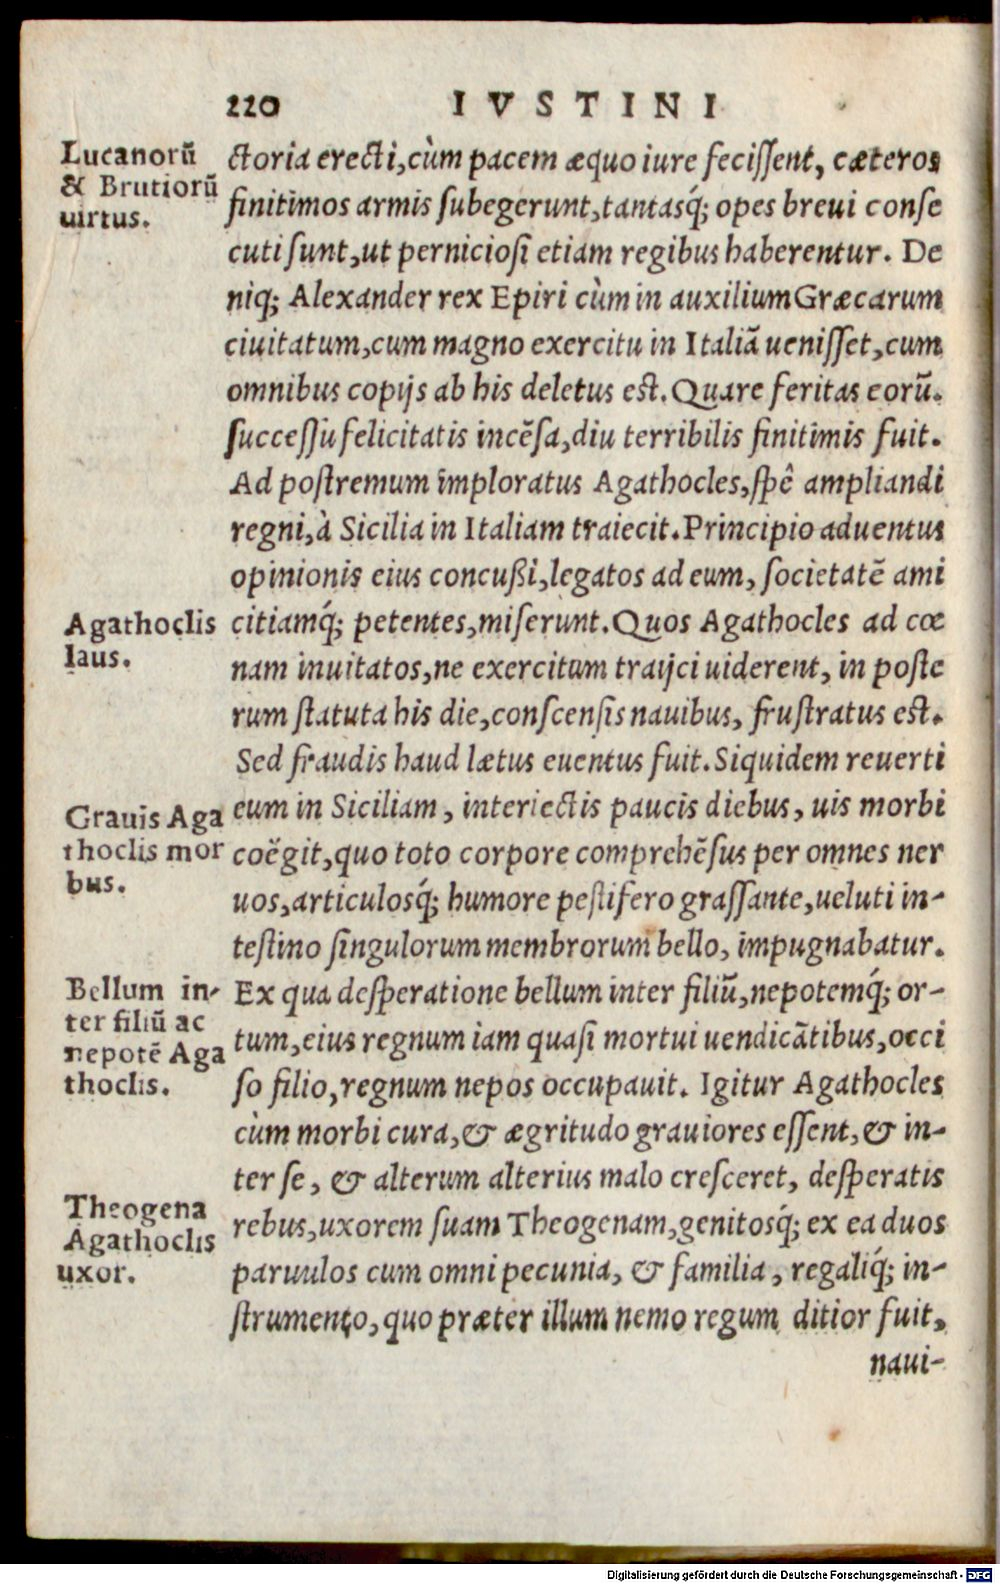 220 IVSTINI
Lucanorũ
& Brutiorũ
uirtus.
ctoria erecti, cùm pacem æquo iure fecissent, cæteros
finitimos armis subegerunt, tantasq́; opes breui conse
cuti sunt, ut perniciosi etiam regibus haberentur. De
niq; Alexander rex Epiri cùm in auxilium Græcarum
ciuitatum, cum magno exercitu in Italiã uenisset, cum
omnibus copijs ab his deletus est. Quare feritas eorũ.
successu felicitatis incẽsa, diu terribilis finitimis fuit.
Ad postremum imploratus Agathocles, spê ampliandi
regni, à Sicilia in Italiam traiecit. Principio aduentus
opinionis eius concußi, legatos ad eum, societatẽ ami
Agathoclis
laus.
citiamq́; petentes, miserunt. Quos Agathocles ad cœ
nam inuitatos, ne exercitum traijci uiderent, in poste
rum statuta his die, conscensis nauibus, frustratus est.
Sed fraudis haud lætus euentus fuit. Siquidem reuerti
Grauis Aga
thoclis mor
bus.
eum in Siciliam, interiectis paucis diebus, uis morbi
coëgit, quo toto corpore comprehẽsus per omnes ner
uos, articulosq́; humore pestifero grassante, ueluti in-
testino singulorum membrorum bello, impugnabatur.
Bellum in-
ter filiũ ac
nepotẽ Aga
thoclis.
Ex qua desperatione bellum inter filiũ, nepotemq́; or-
tum, eius regnum iam quasi mortui uendicãtibus, occi
so filio, regnum nepos occupauit. Igitur Agathocles
cùm morbi cura, & ægritudo grauiores essent, & in-
ter se, & alterum alterius malo cresceret, desperatis
Theogena
Agathoclis
uxor.
rebus, uxorem suam Theogenam, genitosq́; ex ea duos
paruulos cum omni pecunia, & familia, regaliq́; in-
strumento, quo præter illum nemo regum ditior fuit,
naui-
Digitalisierung gefördert durch die Deutsche Forschungsgemeinschaft - DFG